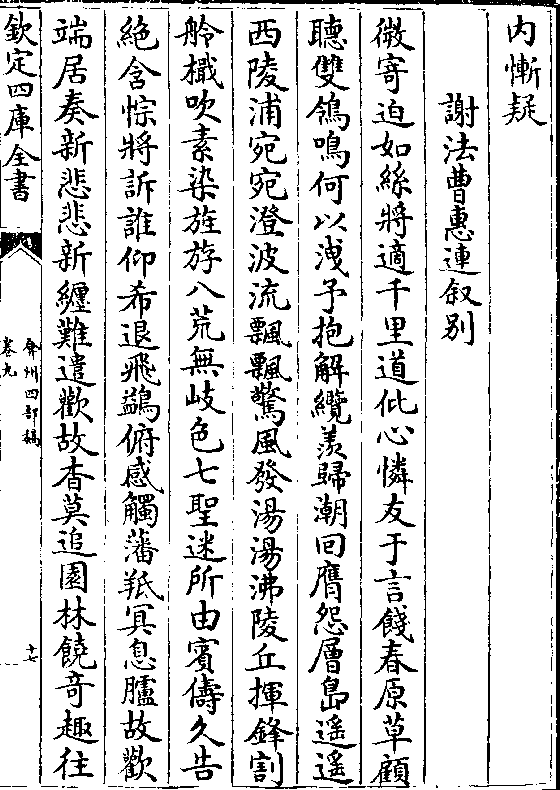 内慚疑
謝法曹惠連叙别
微寄迫如絲將適千里道仳心憐友于言餞春原草顧
聽雙鴒鳴何以洩予抱解纜羨歸潮回鴈怨層島遥遥
西陵浦宛宛澄波流飄飄驚風發湯湯沸陵丘揮鋒割
舲檝吹素染旌斿八荒無岐色七聖迷所由賓儔久告
絶含悰將訴誰仰希退飛鷁俯感觸藩羝冥息臚故歡
端居奏新悲悲新纏難遣歡故杳莫追園林饒竒趣往
欽定四庫全書
弇州四部稿
卷九
十七